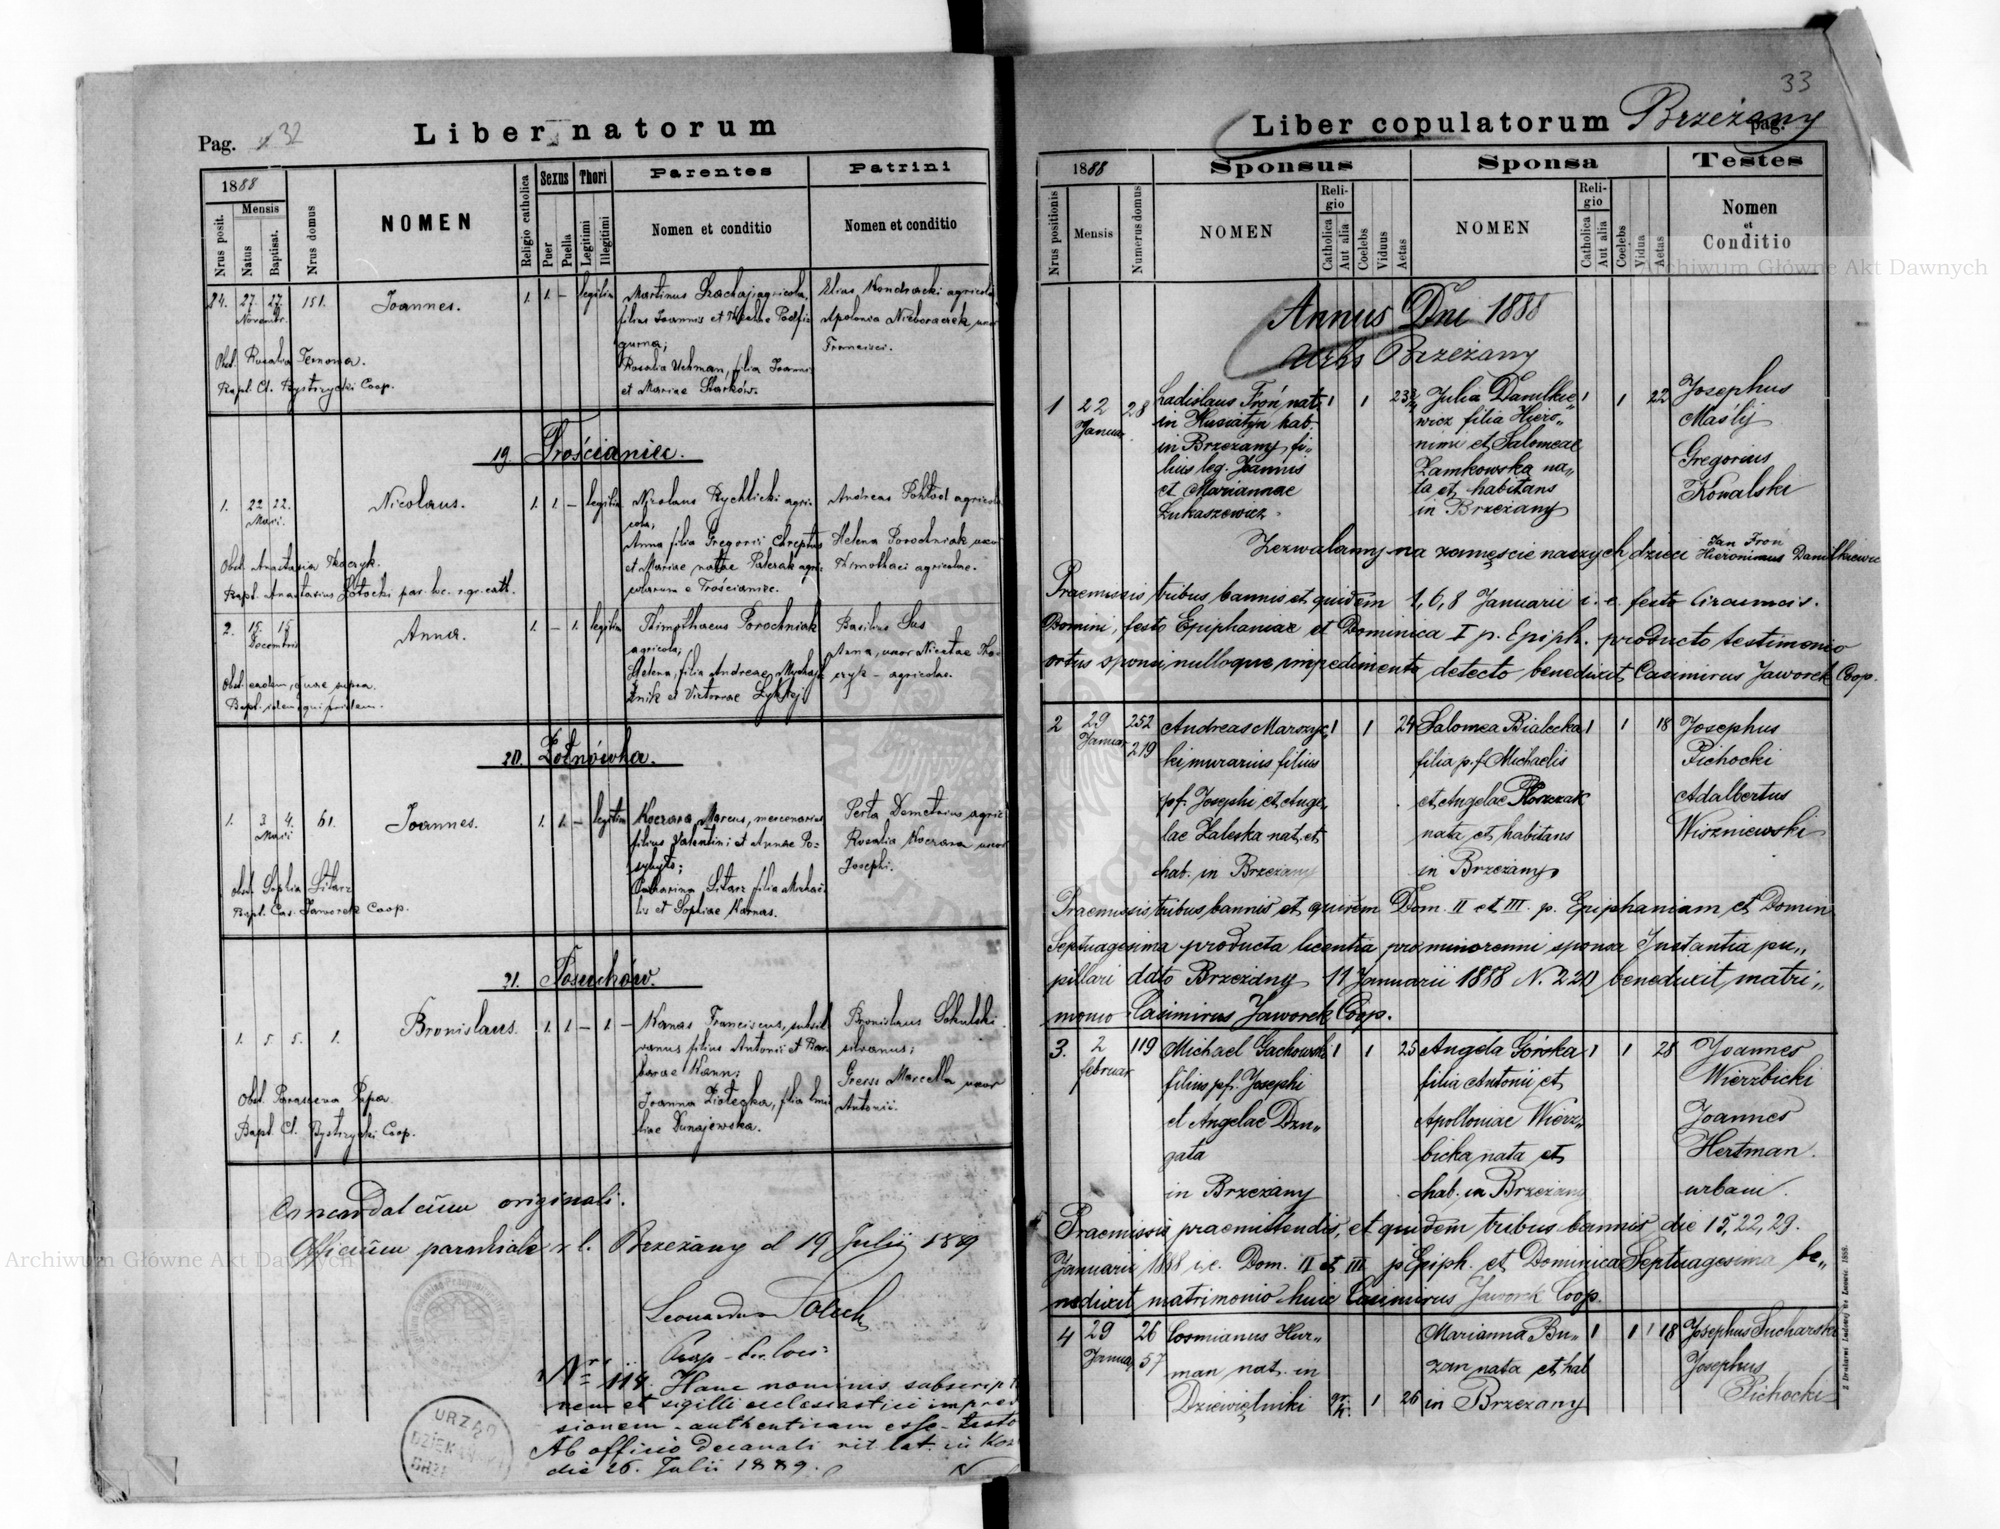 Pag. 32
Liber natorum
1888
Mensis
Nrus posit.
Natus
Baptisat.
Nrus domus
NOMEN
Religio catholica
Sexus
Puer
Puella
Thori
Legitimi
Illegitimi
Parentes
Nomen et conditio
Patrini
Nomen et conditio
24. 27. 27. 151. Joannes. 1. 1. – legitim
Novembr.
Martinus agricola,
filius Joannis et
Rosalia Uchman, filia Joannis
et Mariae
Elias Kondracki agricola
Apolonia uxor
Francisci.
Obst. Rosalia
Bapt. Cl. Bystrzycki Coop.
19. Trościaniec.
1. 22. 22. Nicolaus. 1. 1. – legitim
Marii.
Nicolaus Rychlicki agri-
cola,
Anna filia Gregorii
et Mariae natae
e Trościaniec.
Andreas agricola
Helena Porochniak uxor
Timothaei agricolae.
Obst. Anastasia Tkaczyk.
Bapt. Anastasius par. loc. r. gr. cath.
2. 15. 15. Anna. 1. – 1. legitim
Decembris
Thimothaeus Porochniak
agricola;
Helena, filia Andreae
et Victoriae
Basilius Sus
Anna, uxor Nicetae Tka-
czyk – agricolae.
Obst. eadem, quae supra.
Bapt. idem qui pridem.
20. Żołnówka.
1. 3. 4. 61. Joannes. 1. 1. – legitim
Marii
Koczara Marcus, mercenarius
filius Valentini et Annae
Catharina Sitarz filia Michae-
lis et Sophiae Karnas.
Perta Demetrius agric.
Rosalia Koczara uxor
Josephi.
Obst. Sophia Sitarz
Bapt. Cas. Jaworek Coop.
21. Posuchów.
1. 5. 5. 1. Bronislaus. 1. 1. – 1. –
Kanas Franciscus, subsil
vanus filius Antonii et Bar-
barae
Joanna Ziołecka, filia
Dunajewska.
Bronislaus Sokulski
silvanus;
Greiss Marcella uxor
Antonii.
Obst. Parascewa Pępa.
Bapt. Cl. Bystrzycki Coop.
Concordat cum originali.
Officium parochiale r. l. Brzeżany d 19 Julij 889
Leonardus Solecki
Nr 114. Hanc nominis subscriptio
nem et sigilli ecclesiastici impres
sionem authenticam esse testor
Ab officio decanali rit. lat. in
die 26. Julii 1889.
URZĄD
Archiwum Główne Akt Dawnych
33
Liber copulatorum Brzeżany
pag.
1888
Nrus positionis
Mensis
Numerus domus
Sponsus
NOMEN
Religio
Catholica
Aut alia
Coelebs
Viduus
Aetas
Sponsa
NOMEN
Religio
Catholica
Aut alia
Coelebs
Vidua
Aetas
Testes
Nomen
et
Conditio
Archiwum Główne Akt Dawnych
Annus Dni 1888
Urbs Brzeżany
1 22 28 1 1 23 1 1 22
Januar.
Ladislaus Troń nat.
in Husiatyn hab.
in Brzeżany fi„
lius leg. Joannis
et Mariannae
Łukaszewicz
Julia Danilkie„
wicz filia Hiero„
nimi et Salomeae
Zamkowska na„
ta et habitans
in Brzeżany
Josephus
Maślij
Gregorius
Kowalski
Zezwalamy na zamęście naszych dzieci Jan Troń
Hieronimus Danilkiewicz
Praemissis tribus bannis et quidem 1, 6, 8 Januarii i. e. festo Circumcis.
Domini, festo Epiphaniae et Dominica I p. Epiph. producto testimonio
ortus sponsi, nulloque impedimento detecto benedixit Casimirus Jaworek Coop.
2 29 252 1 1 24 1 1 18
Januar 219
Andreas Marszyc„
ki murarius filius
pf. Josephi et Ange„
lae Zaleska nat. et
hab. in Brzeżany
Salomea Bialecka
filia p.f. Michaelis
et Angelae
nata et habitans
in Brzeżany
Josephus
Pichocki
Adalbertus
Wiszniewski
Praemissis tribus bannis et quidem Dom. II et III. p. Epiphaniam et Domin
Septuagesima producta licentia pro minorenni sponsa Instantia pu„
pillari ddto Brzeżany 11 Januarii 1888 N. 220 benedixit matri„
monio Casimirus Jaworek Coop.
3. 2 119 1 1 25 1 1 28
februar
Michael Gachowski
filius pf. Josephi
et Angelae Dzu„
gata
in Brzeżany
Angela Górska
filia Antonii et
Apolloniae Wierz„
bicka nata et
hab. in Brzeżany
Joannes
Wierzbicki
Joannes
Hertman
urbani.
Praemissis praemittendis, et quidem tribus bannis die 15, 22, 29.
Januarii 1888 i. e. Dom. II et III p Epiph. et Dominica Septuagesima be„
nedixit matrimonio huic Casimirus Jaworek Coop.
4 29 26 1 26 1 1 18
Januar 57
Cosmianus Hur„
man nat. in
Dziewiętniki
Marianna Bu„
zan nata et hab
in Brzeżany
Josephus Sucharski
Josephus
Pichocki
Z Drukarni Ludowej we Lwowie. 1888.